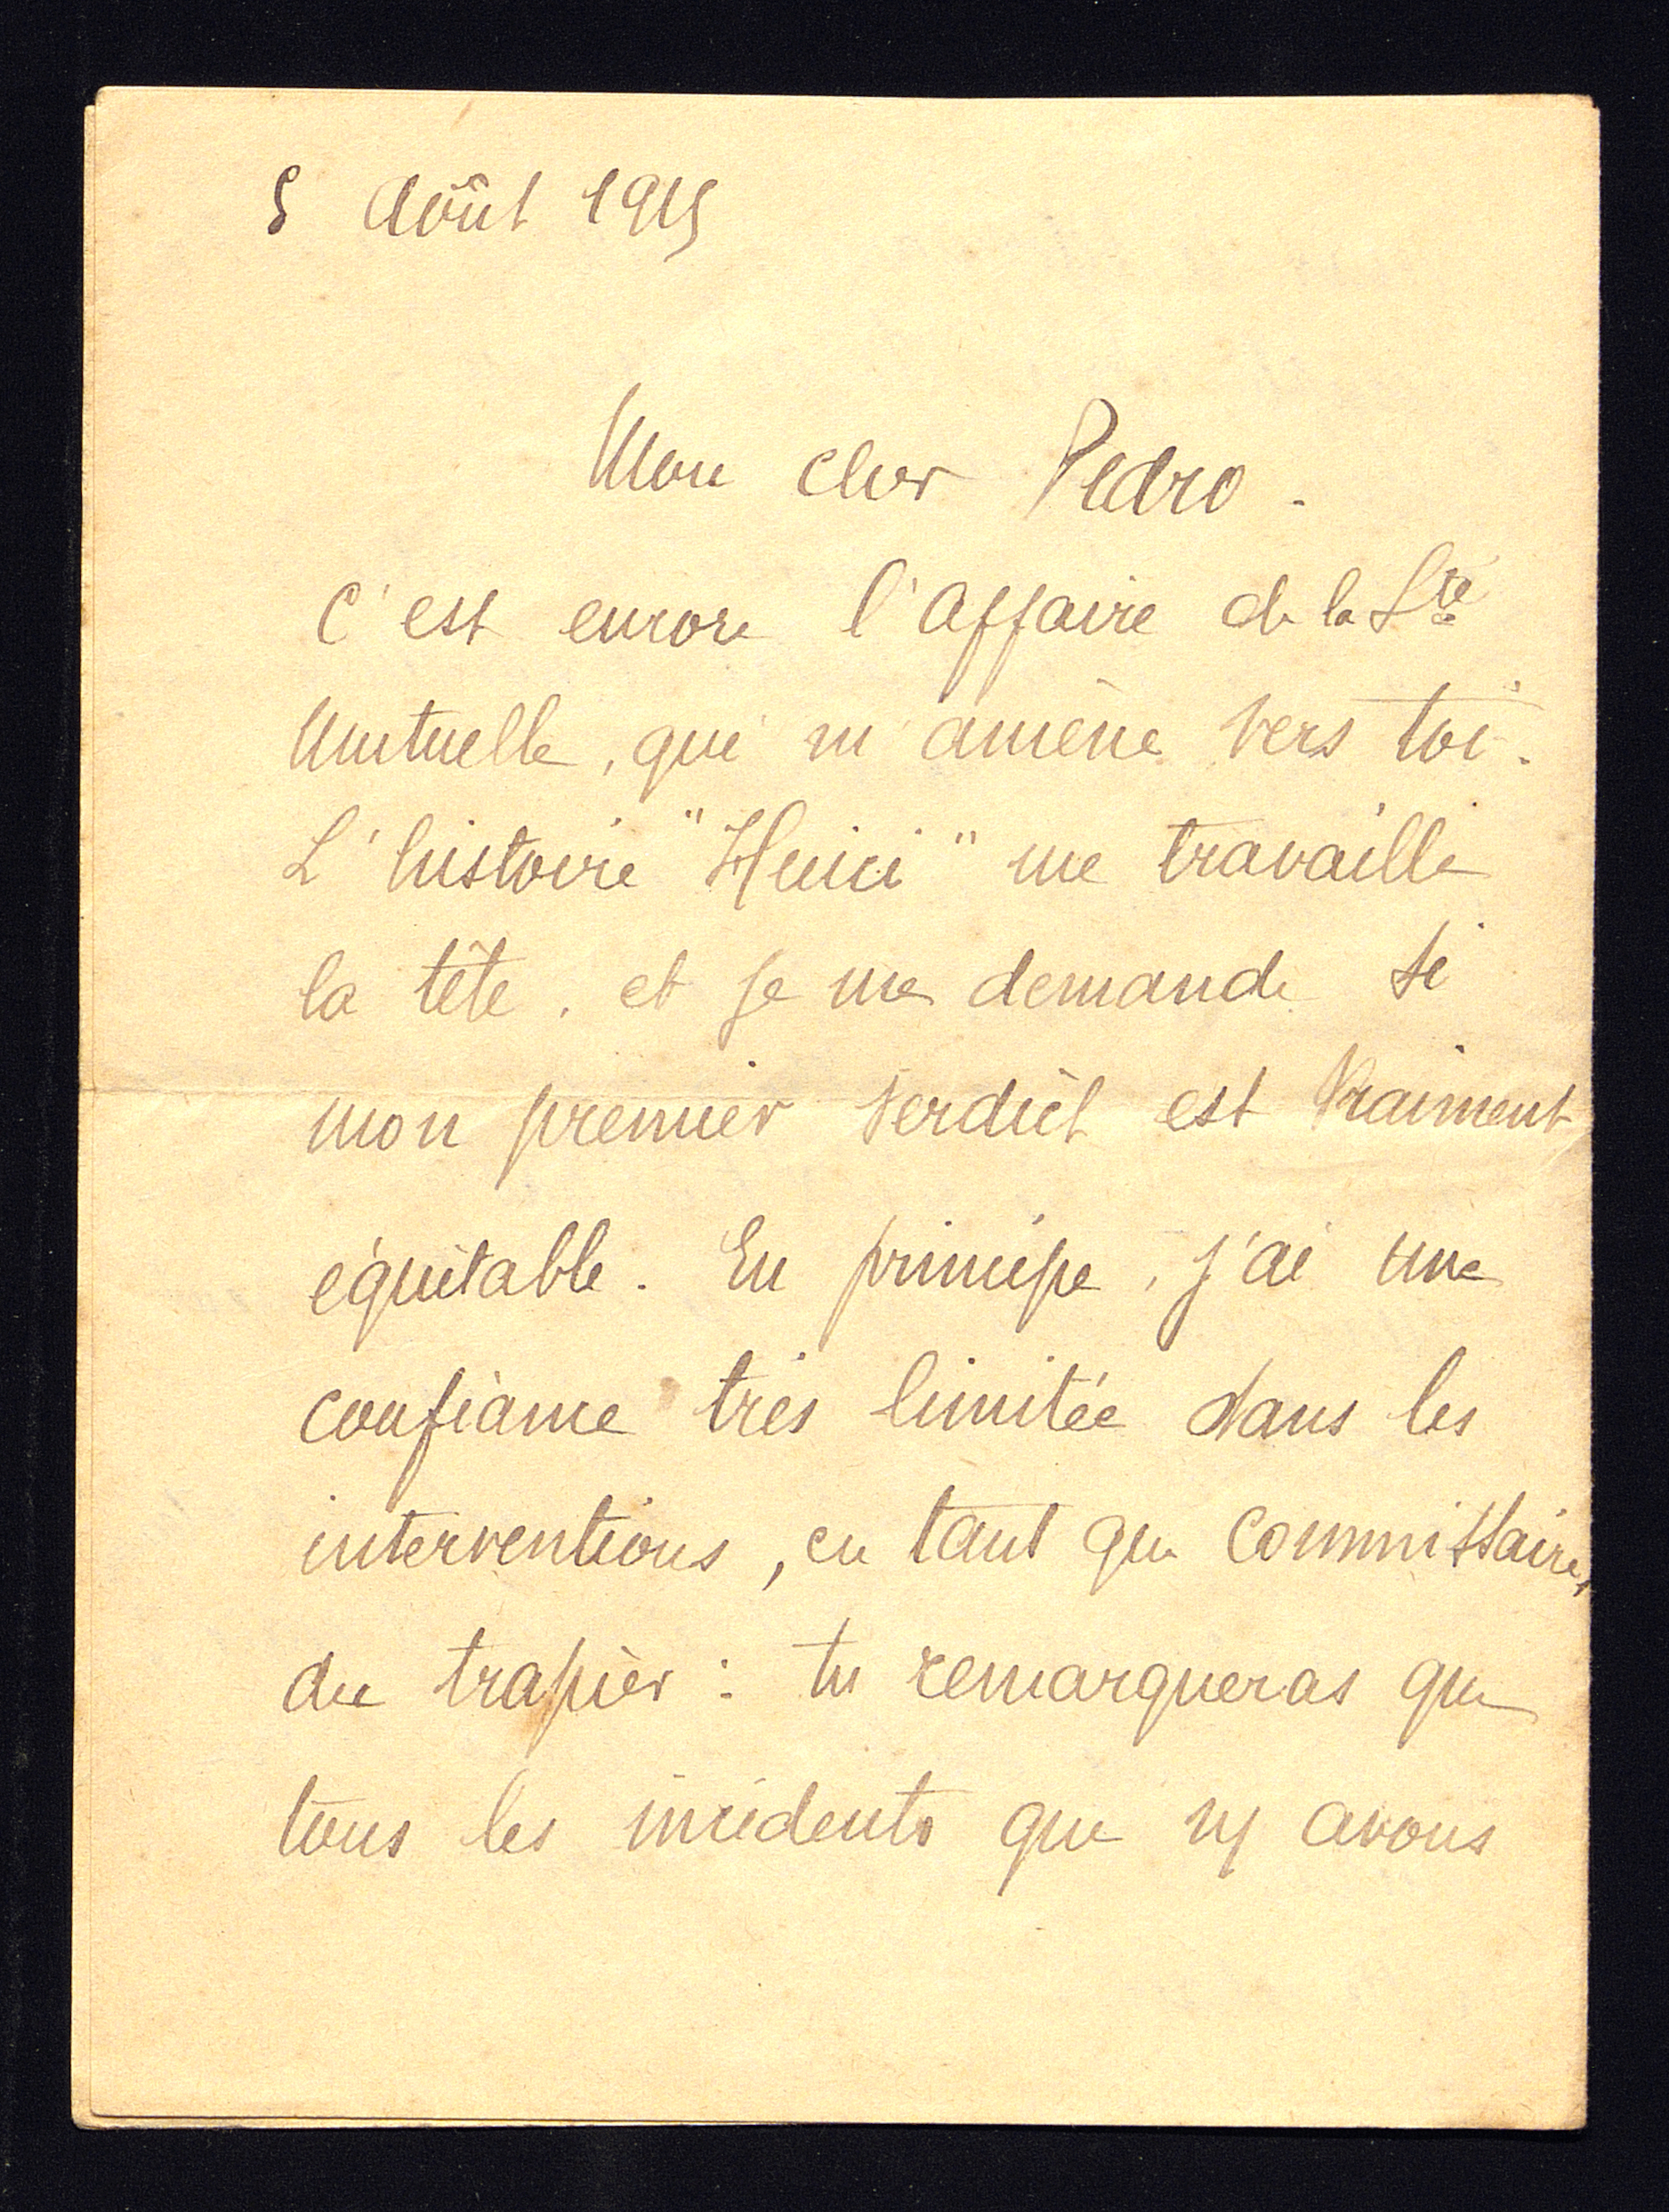 5 Août 1915
Mon cher Pedro.
C'est encore l'affaire de la Sté
Mutuelle, qui m'amène vers toi.
L'histoire "Heinri" me travaille
la tête, et je me demande si
mon premier verdict est vraiment
équitable. En principe, j'ai une
confiance très limitée dans les
interventions, en tant que commissaire,
du trapier : tu remarqueras que
tous les incidents que ns avons